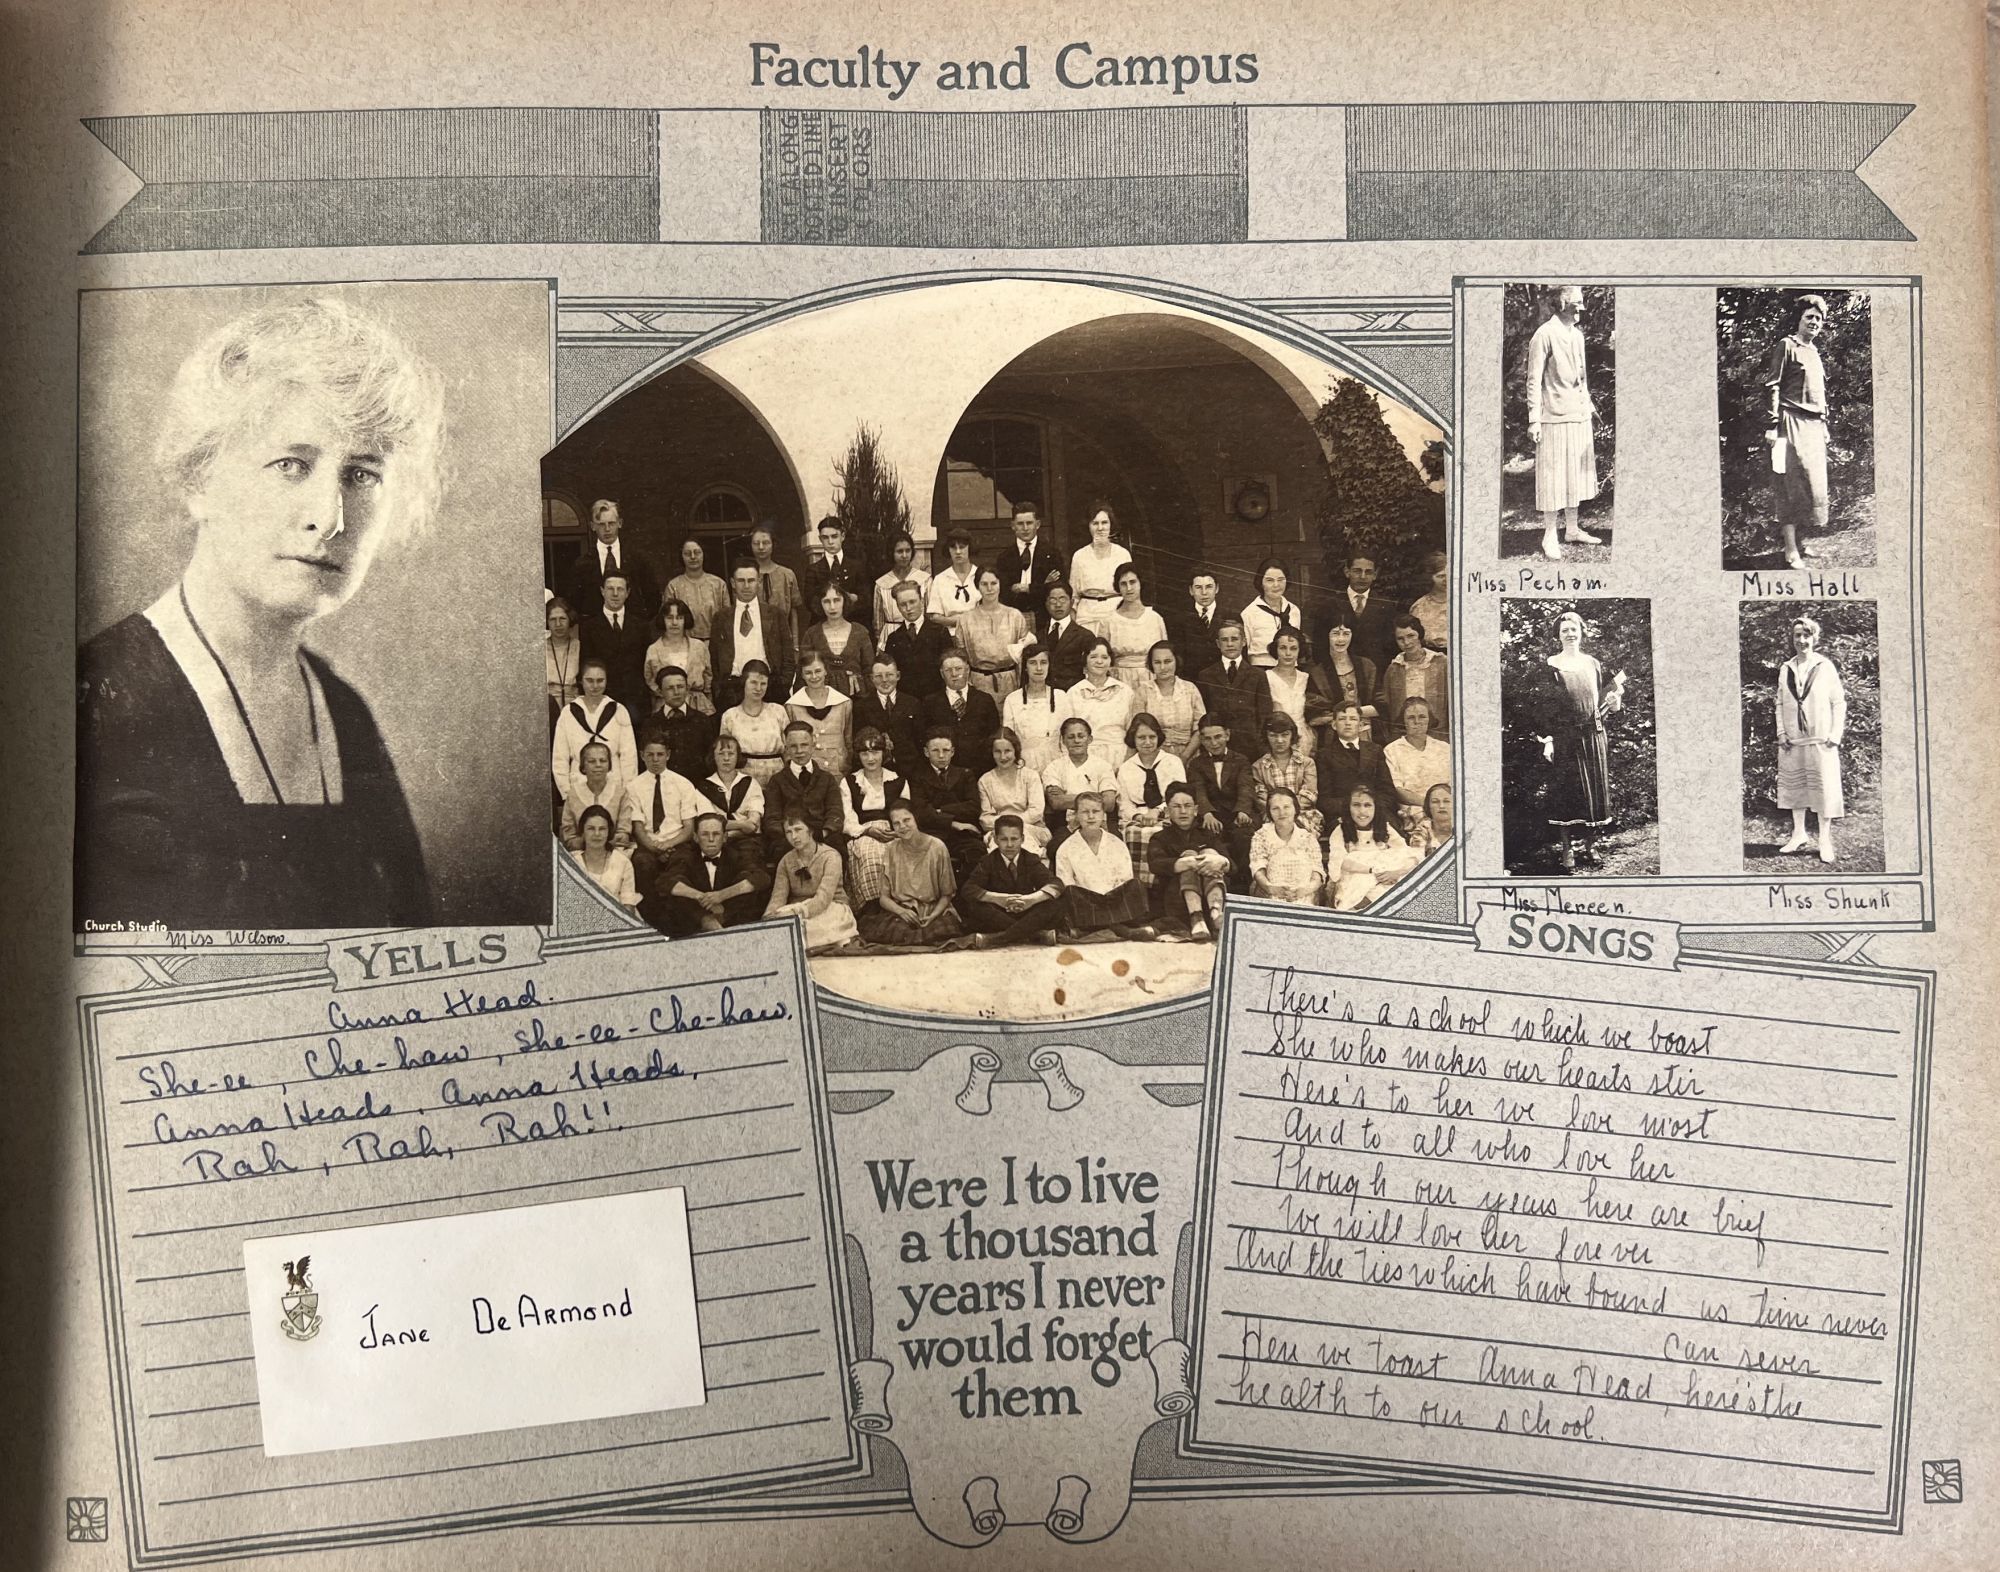 Faculty and Campus
CUT ALONG
DOTTED LINE
TO INSERT
COLORS
Church Studio
Miss Wilson.
Miss Pecham.
Miss Hall
Miss Mereen.
Miss Shunk
YELLS
Anna Head.
She-ee, Che-haw, she-ee-Che-haw.
Anna Heads. Anna Heads.
Rah, Rah, Rah!!
JANE DeARMOND
Were I to live
a thousand
years I never
would forget
them
SONGS
There's a school which we boast
She who makes our hearts stir
Here's to her we love most
And to all who love her
Though our years here are brief
We will love her forever
And the ties which have bound us time never
can sever
Here we toast Anna Head, here's the
health to our school.